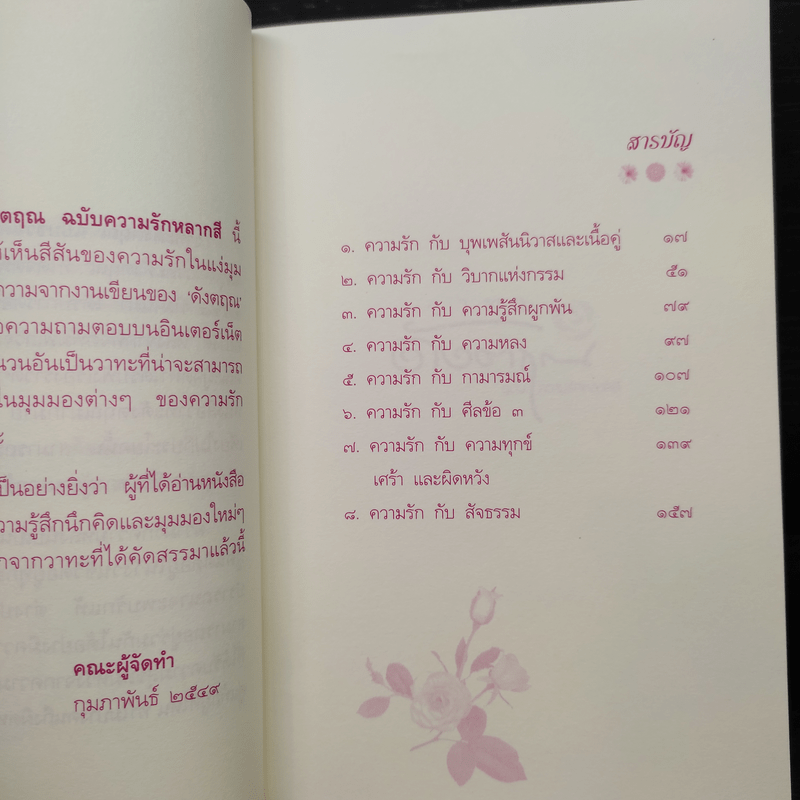 ตฤณ ฉบับความรักหลากสี นี้
ห้เห็นสีสันของความรักในแง่มุม
ความจากงานเขียนของ 'ดังตฤณ'
อความถามตอบบนอินเตอร์เน็ต
นวนอันเป็นวาทะที่น่าจะสามารถ
ในมุมมองต่างๆ ของความรัก
เป็นอย่างยิ่งว่า ผู้ที่ได้อ่านหนังสือ
วามรู้สึกนึกคิดและมุมมองใหม่ๆ
กจากวาทะที่ได้คัดสรรมาแล้วนี้
คณะผู้จัดทำ
กุมภาพันธ์ ๒๕๔๙
สารบัญ
๑. ความรัก กับ บุพเพสันนิวาสและเนื้อคู่ ๑๗
๒. ความรัก กับ วิบากแห่งกรรม ๕๑
๓. ความรัก กับ ความรู้สึกผูกพัน ๗๙
๔. ความรัก กับ ความหลง ๙๗
๕. ความรัก กับ กามารมณ์ ๑๐๗
๖. ความรัก กับ ศีลข้อ ๓ ๑๒๑
๗. ความรัก กับ ความทุกข์ ๑๓๙
เศร้า และผิดหวัง
๘. ความรัก กับ สัจธรรม ๑๕๗